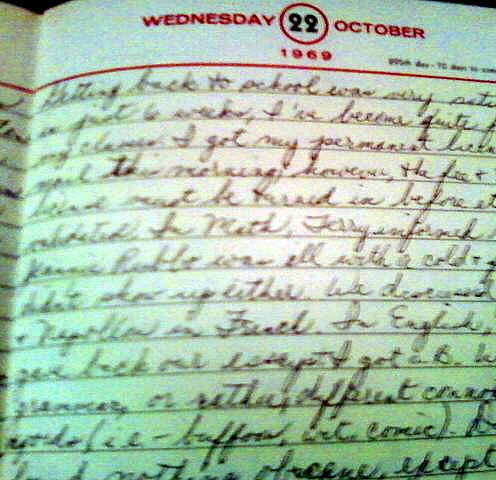 WEDNESDAY 22 OCTOBER
1969
295th day - 70 days to come
Getting back to school was very
in just 6 weeks, I've become quite
my classes. I got my permanent
mail this morning; however, the fee +
must be turned in before
In Math, Terry informed
was ill with a cold +
didn't show up either. We discussed
+ Napoleon in French. In English,
gave back our essays + I got a B. We
grammar, or rather, different
words (i.e. - buffoon, wit, comic).
nothing obscene, except